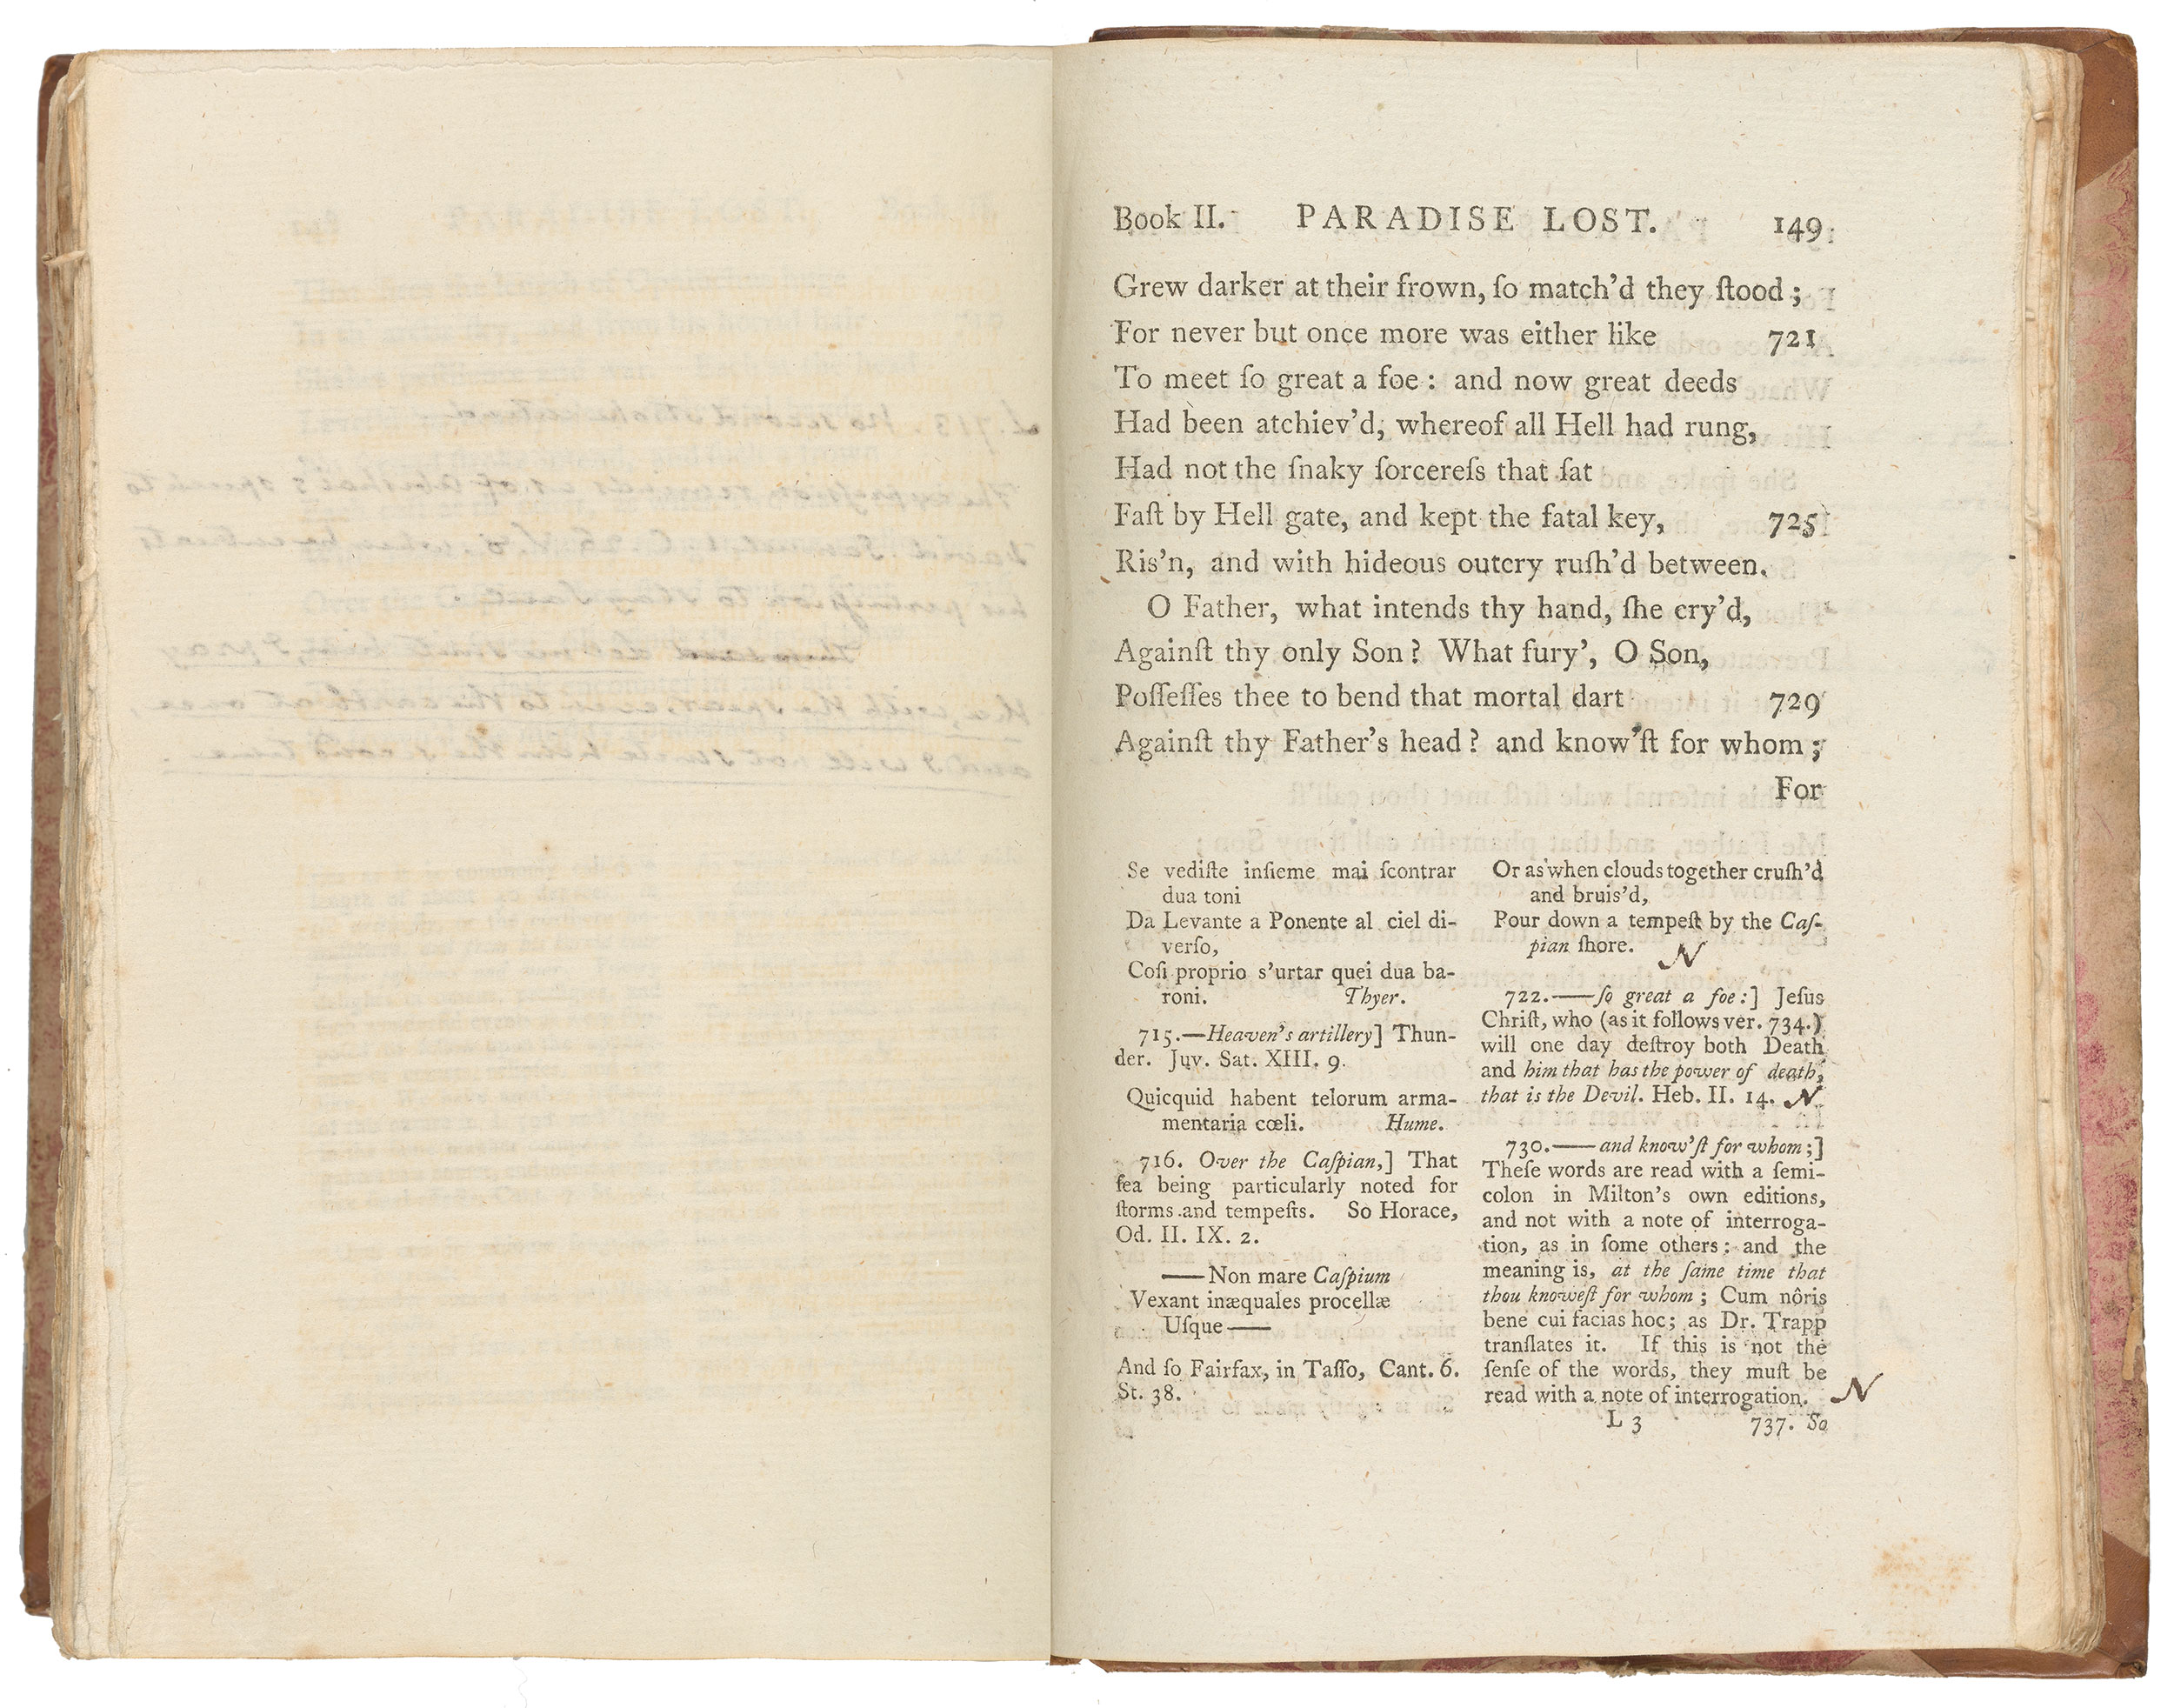 Book II. PARADISE LOST. 149
Grew darker at their frown, ſo match'd they ſtood;
For never but once more was either like 721
To meet ſo great a foe: and now great deeds
Had been atchiev'd, whereof all Hell had rung,
Had not the ſnaky ſorcereſs that ſat
Faſt by Hell gate, and kept the fatal key, 725
Ris'n, and with hideous outcry ruſh'd between.
O Father, what intends thy hand, ſhe cry'd,
Againſt thy only Son? What fury', O Son,
Poſſeſſes thee to bend that mortal dart 729
Againſt thy Father's head? and know'ſt for whom;
For
Se vediſte inſieme mai ſcontrar
dua toni
Da Levante a Ponente al ciel di-
verſo,
Coſi proprio s'urtar quei dua ba-
roni. Thyer.
715.—Heaven's artillery] Thun-
der. Juv. Sat. XIII. 9.
Quicquid habent telorum arma-
mentaria cœli. Hume.
716. Over the Caſpian,] That
ſea being particularly noted for
ſtorms and tempeſts. So Horace,
Od. II. IX. 2.
—Non mare Caſpium
Vexant inæquales procellæ
Uſque—
And ſo Fairfax, in Taſſo, Cant. 6.
St. 38.
Or as when clouds together cruſh'd
and bruis'd,
Pour down a tempeſt by the Caſ-
pian ſhore. N
722.—ſo great a foe:] Jeſus
Chriſt, who (as it follows ver. 734.)
will one day deſtroy both Death
and him that has the power of death,
that is the Devil. Heb. II. 14. N
730.—and know'ſt for whom;]
Theſe words are read with a ſemi-
colon in Milton's own editions,
and not with a note of interroga-
tion, as in ſome others: and the
meaning is, at the ſame time that
thou knoweſt for whom; Cum nôris
bene cui facias hoc; as Dr. Trapp
tranſlates it. If this is not the
ſenſe of the words, they muſt be
read with a note of interrogation. N
L 3 737. So